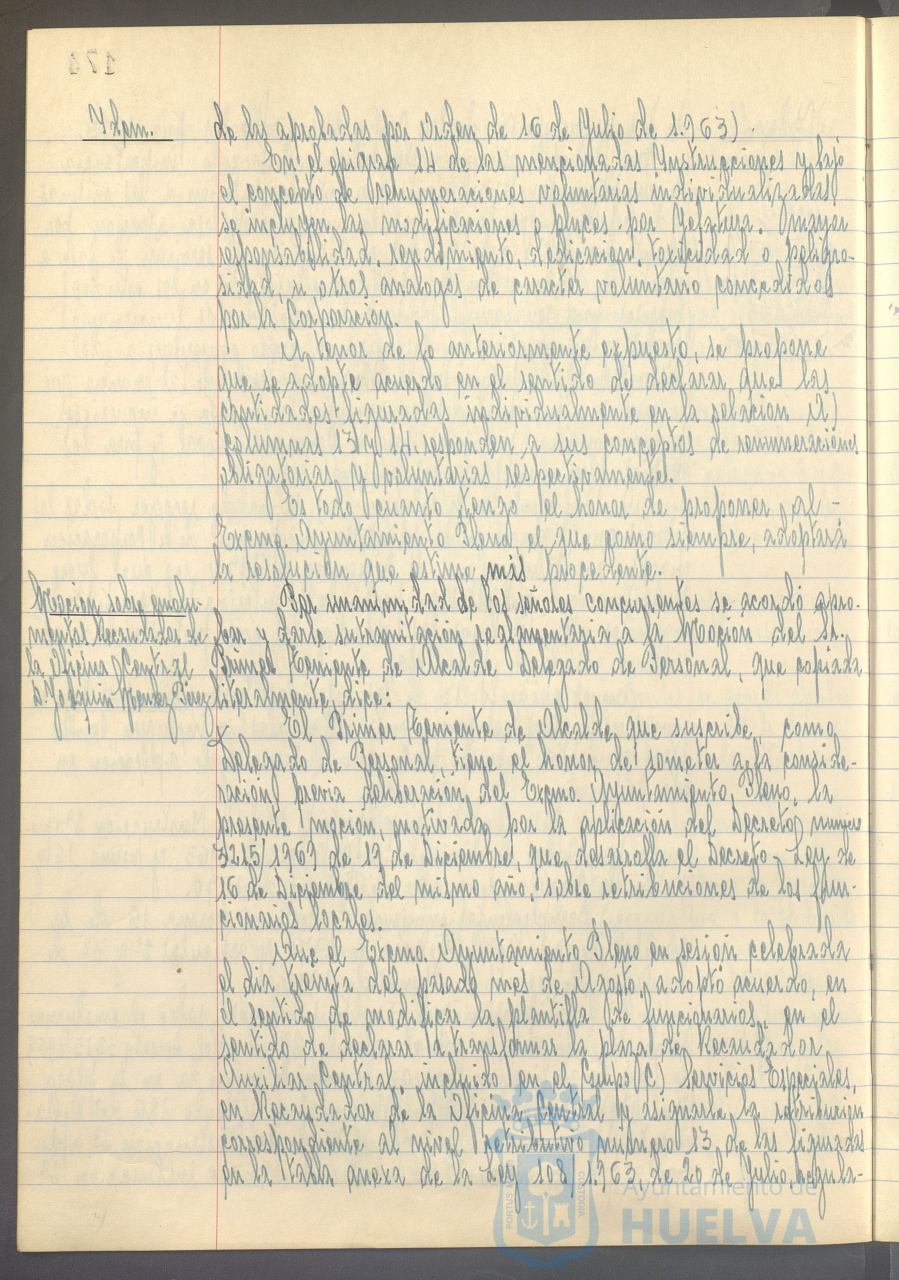 174
Idem.
de las aprobadas por Orden de 16 de Julio de 1.963).
En el epigrafe 14 de las mencionadas Instrucciones y bajo
el concepto de remuneraciones voluntarias individualizadas
se incluyen las modificaciones o pluses por Jefatura. mayor
responsabilidad, rendimiento, dedicación, toxicidad o peligro-
sidad, u otros analogos de caracter voluntario concedidos
por la Corporación.
A tenor de lo anteriormente expuesto, se propone
que se adopte acuerdo en el sentido de declarar que las
cantidades figuradas individualmente en la relación A)
columnas 13 y 14, responden a sus conceptos de remuneraciones
obligatorias y voluntarias respectivamente.
Es todo cuanto tengo el honor de proponer al -
Excmo. Ayuntamiento Pleno el que como siempre, adoptará
la resolución que estime más procedente.
Moción sobre emolu-
mentos Recaudador de
la Oficina Central
D. Joaquin Perez
Por unanimidad de los señores concurrentes se acordó apro-
bar y darle sutramitación reglamentaria a la Moción del Sr.
Primer Teniente de Alcalde Delegado de Personal, que copiada
literalmente, dice:
El Primer Teniente de Alcalde, que suscribe, como
Delegado de Personal, tiene el honor de someter a la conside-
ración previa deliberación del Excmo. Ayuntamiento Pleno, la
presente moción, motivada por la aplicación del Decreto numero
3215/1969 de 19 de Diciembre, que desarrolla el Decreto-Ley de
16 de Diciembre del mismo año, sobre retribuciones de los fun-
cionarios locales.
Que el Excmo. Ayuntamiento Pleno en sesión celebrada
el dia treinta del pasado mes de Agosto, adoptó acuerdo, en
el sentido de modificar la plantilla de funcionarios, en el
sentido de declarar a transformar la plaza de Recaudador
Auxiliar Central, incluido en el Grupo C) Servicios Especiales,
en Recaudador de la Oficina Central y asignarle, la retribución
correspondiente al nivel retributivo número 13 de las figuradas
en la Tabla anexa de la Ley 108/1.963, de 20 de Julio, regula-
PORTUS MARIS
CUSTODIA
Ayuntamiento de
HUELVA